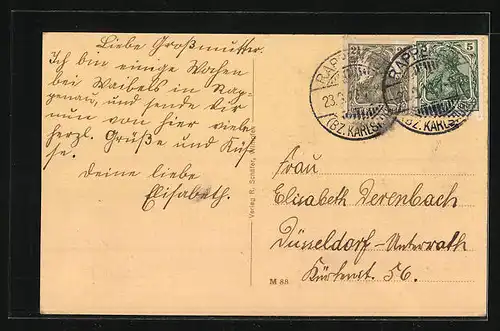 Liebe Großmutter.
Ich bin einige Wochen
bei Waibels in Rap-
penau, und sende Dir
nun von hier viele
herzl. Grüße und Küs-
se.
Deine liebe
Elisabeth.
Verlag R. Schäfer,
2½
5
RAPP
23.
(BZ. KARLSR
RAPP
(BZ. KARLSR
Frau
Elisabeth Derenbach
Düsseldorf-Unterrath
56.
M 88